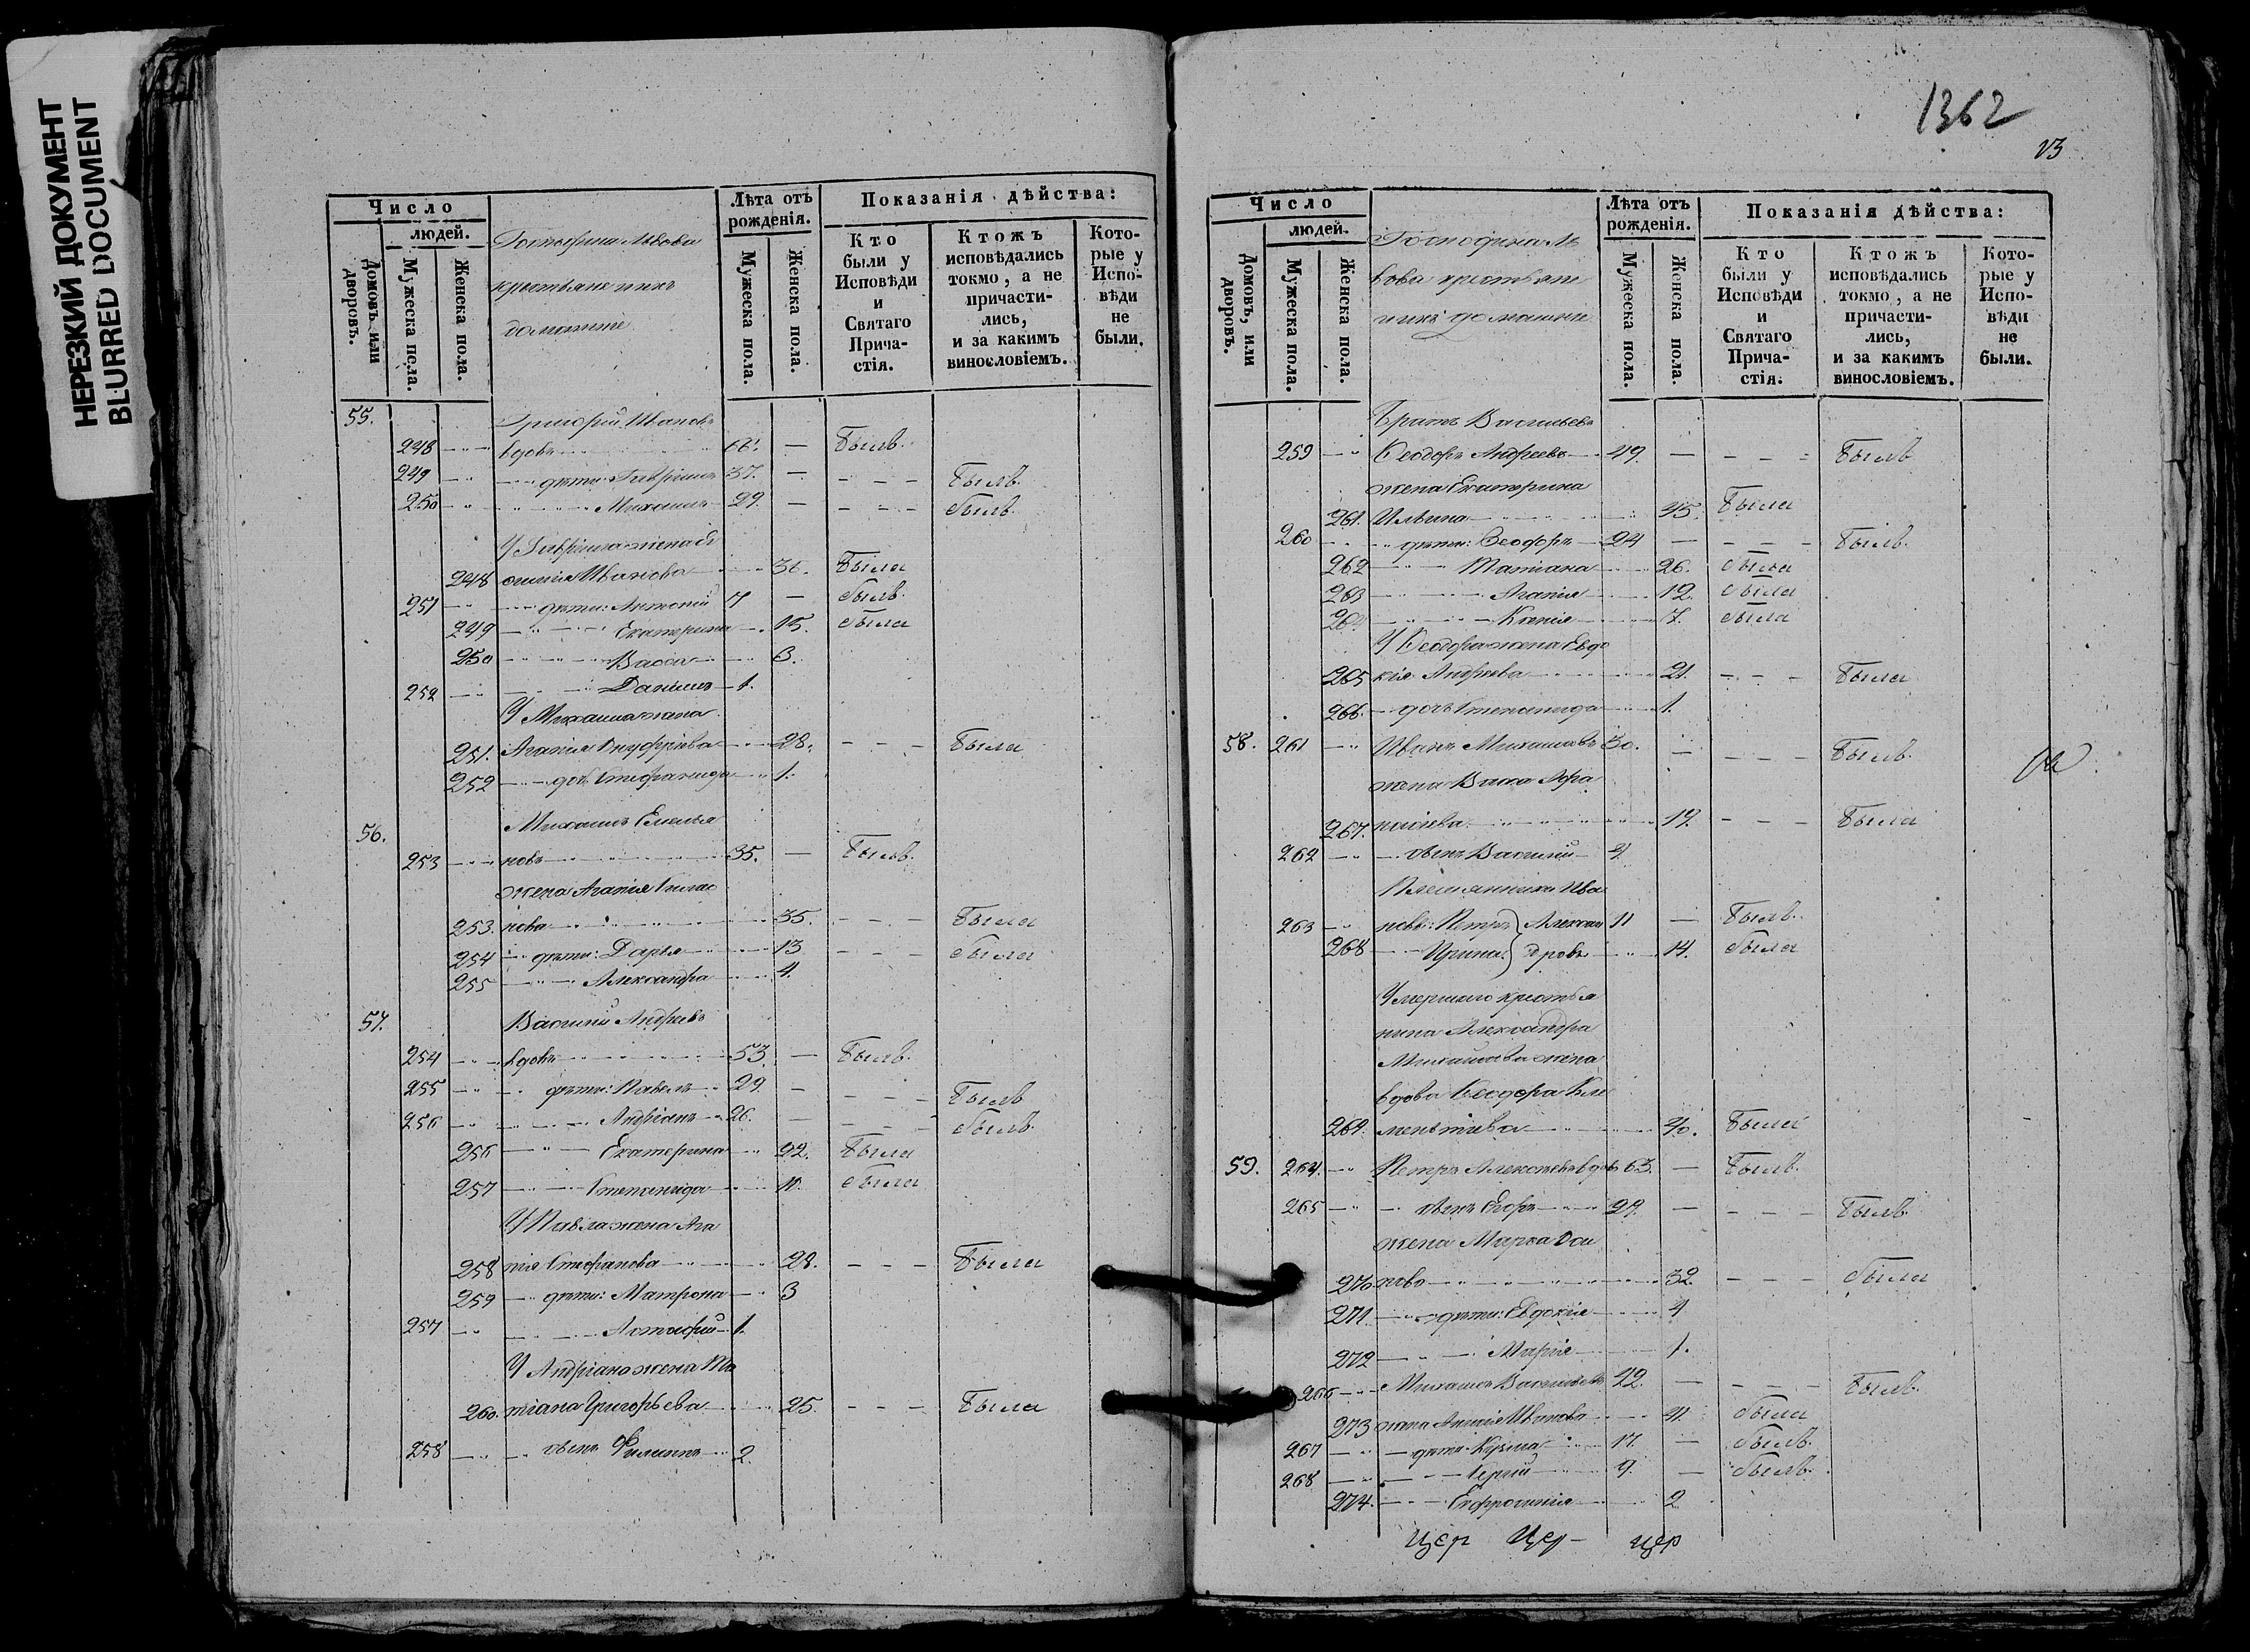 НЕРЕЗКИЙ ДОКУМЕНТ
BLURRED DOCUMENT
Число
людей.
Домовъ, или дворовъ.
Мужеска пола.
Женска пола.
Господина Львова
крестьяне и ихъ
домашніе
Лѣта отъ рожденія.
Мужеска пола.
Женска пола.
Показанія дѣйства:
Кто были у Исповѣди и Святаго Прича-стія.
Ктожъ исповѣдались токмо, а не причасти-лись, и за какимъ винословіемъ.
Кото-рые у Испо-вѣди не были.
55. Григорій Ивановъ
248 вдовъ — Былъ.
249 дѣти: Гавріилъ 37. — Былъ.
250 Михаилъ 29. — Былъ.
У Гавріила жена
248 Иванова 36. Была
251 дѣти: Антоній — Былъ.
249 Екатерина 15. Была
250 Васса 3.
252 Даніилъ 1.
У Михаила жена
251. Агапія Онуфріева 28. Была
252 дочь Стефанида 1.
56. Михаилъ Емелья
253 новъ 35. — Былъ.
жена Агапія
253. нова 35. Была
254 дѣти: Дарья 13 Была
255 Александра 4.
57. Василій Андреевъ
254 вдовъ 53. — Былъ.
255 дѣти: Павелъ 29. — Былъ
256 Андріанъ 26. — Былъ.
256 Екатерина 22. Была
257 Степанида 11. Была
У Павла жена Ага
258 пія Стефанова 28. Была
259 дѣти: Матрона 3
257 Астафій 1.
У Андріана жена Та
260. тіана Григорьева 25. Была
258 сынъ Филиппъ 2.
1362
Число
людей.
Домовъ, или дворовъ.
Мужеска пола.
Женска пола.
Господина Ль
вова крестьяне
и ихъ домашніе
Лѣта отъ рожденія.
Мужеска пола.
Женска пола.
Показанія дѣйства:
Кто были у Исповѣди и Святаго Прича-стія.
Ктожъ исповѣдались токмо, а не причасти-лись, и за какимъ винословіемъ.
Кото-рые у Испо-вѣди не были.
Братъ Васильевъ
259 Ѳеодоръ Андреевъ 49. — Былъ
жена Екатерина
261. Ильина 45. Была
260 дѣти: Ѳеодоръ 24 — Былъ.
262 Татіана 26. Была
263 Агапія 12. Была
Ксенія 7. Была
У Ѳеодора жена Евдо
265 кія Андреева 21. Была
266. дочь Степанида 1.
58. 261 Иванъ Михайловъ 30. — Былъ.
жена Васса Афа
267. насіева 19. Была
262 сынъ Василій
Племянники Ива
263 новы: Петръ Алексан 11 — Былъ.
268 Ирина дровы 14. Была
Умершаго крестья
нина Александра
Михайлова жена
вдова Ѳеодора Кле
269. ментіева 40. Была
59. 264. Петръ Алексѣевъ вдовъ 63. — Былъ.
265 сынъ Егоръ 29. — Былъ.
жена Марѳа
270 нова 32. Была
271. дѣти: Евдокія 4
272 Марія 1.
266 Михаилъ Васильевъ 42. — Былъ.
273 жена Иванова 41. Была
267 дѣти: Кузьма — Былъ.
268 Сергій 9. — Былъ.
274. Евфросинія 2
Цер Цер- цер